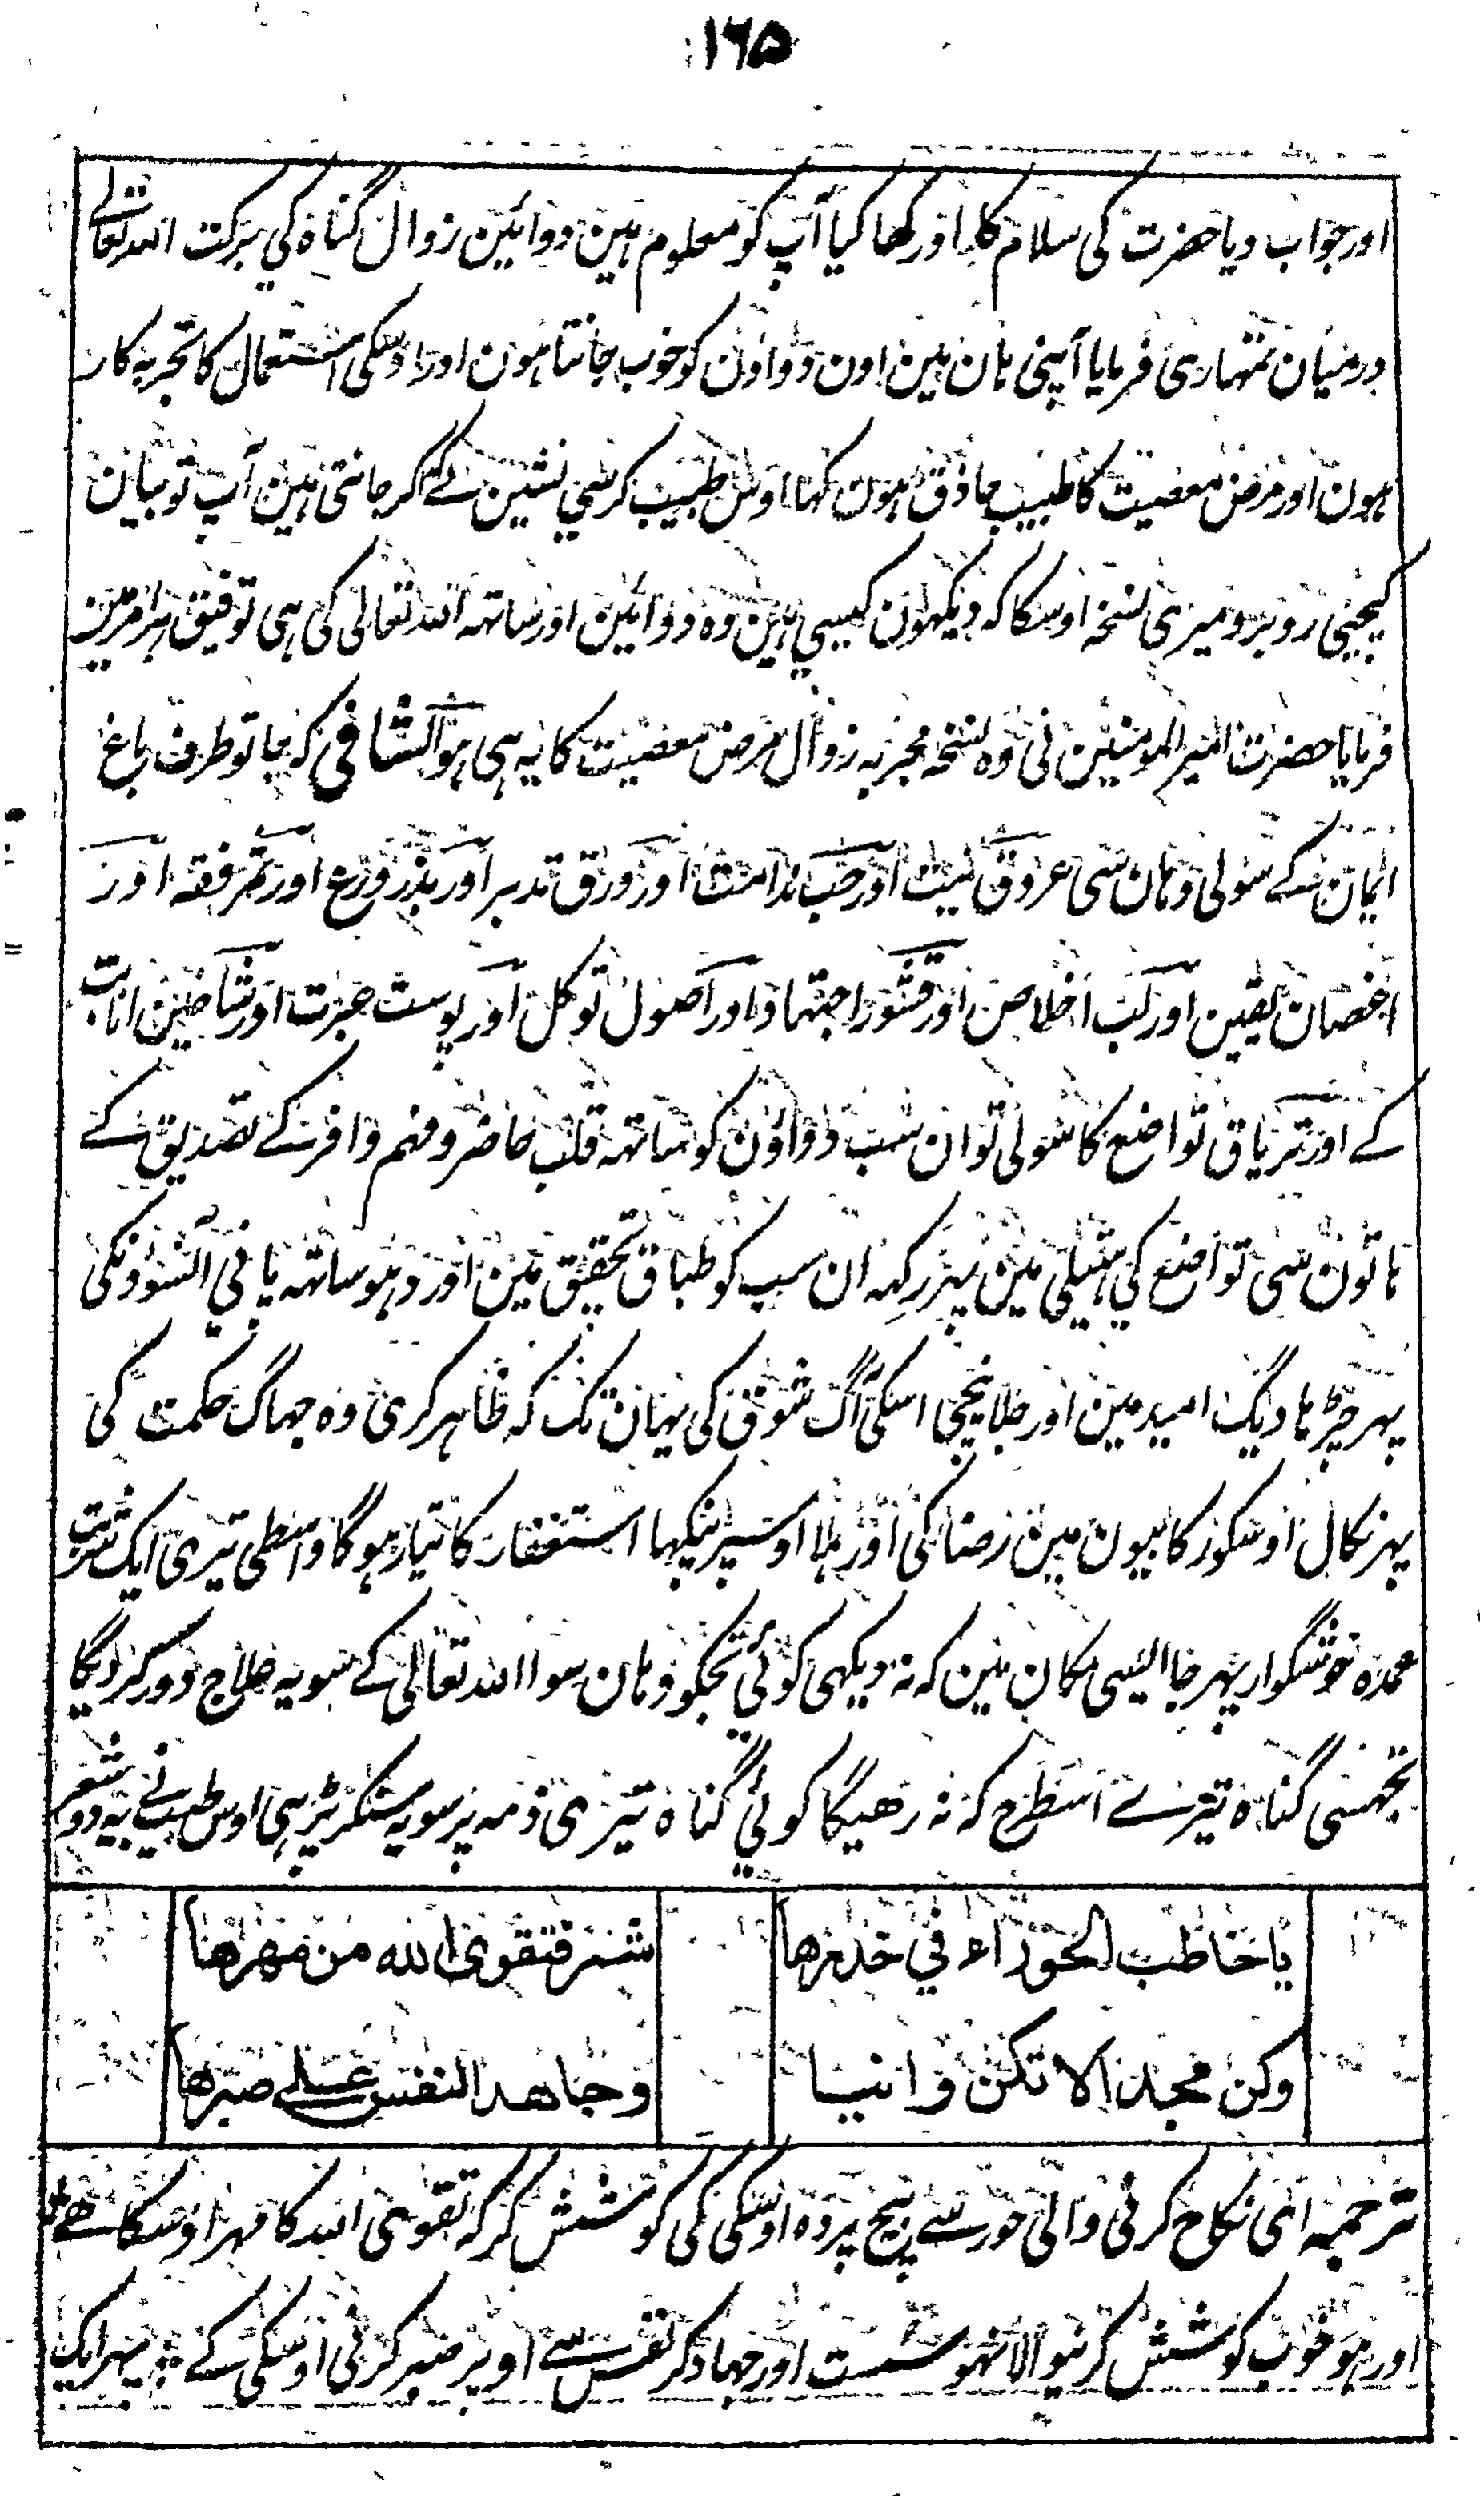 ۱۶۵
اور جواب دیا حضرت کی سلام کا اور کہا کیا آپ کو معلوم ہین دوائین زوال گناہ کی برکت اللہ تعالے
درمیان تمہاری فرمایا آپنی ہان مین اون دواؤن کو خوب جانتا ہون اور اوسکی استعمال کا تجربہ کار
ہون اور مرض معصیت کا طبیب حاذق ہون کہا اوس طبیب کرسی نشین نے اگر جانتی ہین آپ تو بیان
کیجیی روبرو میری نسخہ اوسکا کہ دیکہون کیسی ہین وہ دوائین اور ساتہہ اللہ تعالی کی ہی توفیق ہر امر مین
فرمایا حضرت امیر المومنین نی وہ نسخہ مجربہ زوال مرض معصیت کا یہ ہی ہو الشافی کہ جا تو طرف باغ
ایمان کے سو لی وہان سی عروق نیت اور حب ندامت اور ورق تدبر اور بذر ورع اور ثمر فقہ اور
اغصان یقین اور لب اخلاص اور قشور اجتہاد اور اصول توکل اور پوست عبرت اور شاخین انابت
کے اور تریاق تواضع کا سو لی تو ان سب دواؤن کو ساتہہ قلب حاضر و فہم وافر کے تصدیق کے
ہاتون سی تواضع کی ہتیلی مین پہر رکہہ ان سب کو طباق تحقیق مین اور دہو ساتہہ پانی آنسوؤنکی
پہر چڑہا دیگ امید مین اور جلا نیچی اسکی آگ شوق کی یہان تک کہ ظاہر کری وہ جہاگ حکمت کی
پہر نکال اوسکو رکابیون مین رضا کی اور ہلا اوسپر پنکہا استغفار کا تیار ہوگا واسطی تیری ایک شربت
عمدہ خوشگوار پہر جا ایسی مکان مین کہ نہ دیکہی کوئی تجکو وہان سوا اللہ تعالی کے سو یہ علاج دور کر دیگا
تجہسی گناہ تیرے اسطرح کہ نہ رہیگا کوئی گناہ تیری ذمہ پر سو یہ سنکر پڑہی اوس طبیب نے یہ دو شعر
یا خاطب الحوراء في خدرها
شمر فتقوى الله من مهرها
وکن مجدا لا تکن وانیا
وجاهد النفس علی صبرها
ترجمہ ای نکاح کرنی والی حور سے بیچ پردہ اوسکی کی کوشش کر کہ تقوی اللہ کا مہر اوسکا ہے
اور ہو خوب کوشش کرنیوالا نہو سست اور جہاد کر نفس سے اوپر صبر کرنی اوسکی کے پہر ایک